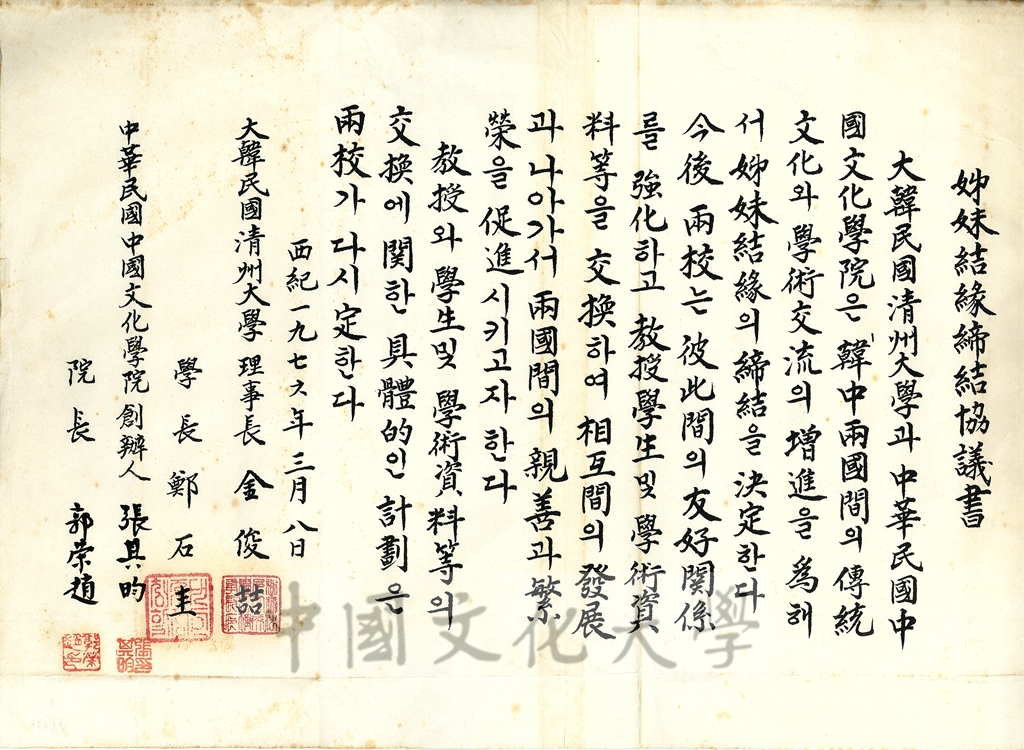 姊妹結緣締結協議書
大韓民國清州大學과 中華民國中
國文化學院은 韓中兩國間의 傳統
文化와 學術交流의 增進을 爲해
서 姊妹結緣의 締結을 決定한다
今後 兩校는 彼此間의 友好関係
를 強化하고 教授學生및 學術資
料等을 交換하여 相互間의 發展
과 나아가서 兩國間의 親善과 繁
榮을 促進시키고자한다
教授와 學生및 學術資料等의
交換에 関한 具體的인 計劃은
兩校가 다시 定한다
西紀一九七六年 三月 八日
大韓民國清州大學 理事長 金俊喆
學長 鄭石圭
中華民國中國文化學院 創辦人 張其昀
院長 郭榮趙
中國文化大學